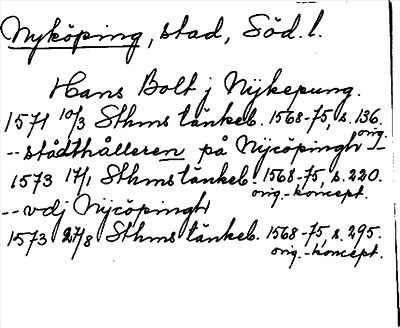 Nyköping, stad, Söd. l.
Hans Bolt j Nÿkepung.
1571 10/3 Sthms tänkeb. 1568-75, s. 136.
orig.
-- städthålleren på Nÿcöpingh -
1573 17/1 Sthms tänkeb. 1568-75, s. 220.
orig.-koncept.
-- vdj Nÿcöpingh
1573 27/8 Sthms tänkeb. 1568-75, s. 295.
orig.-koncept.